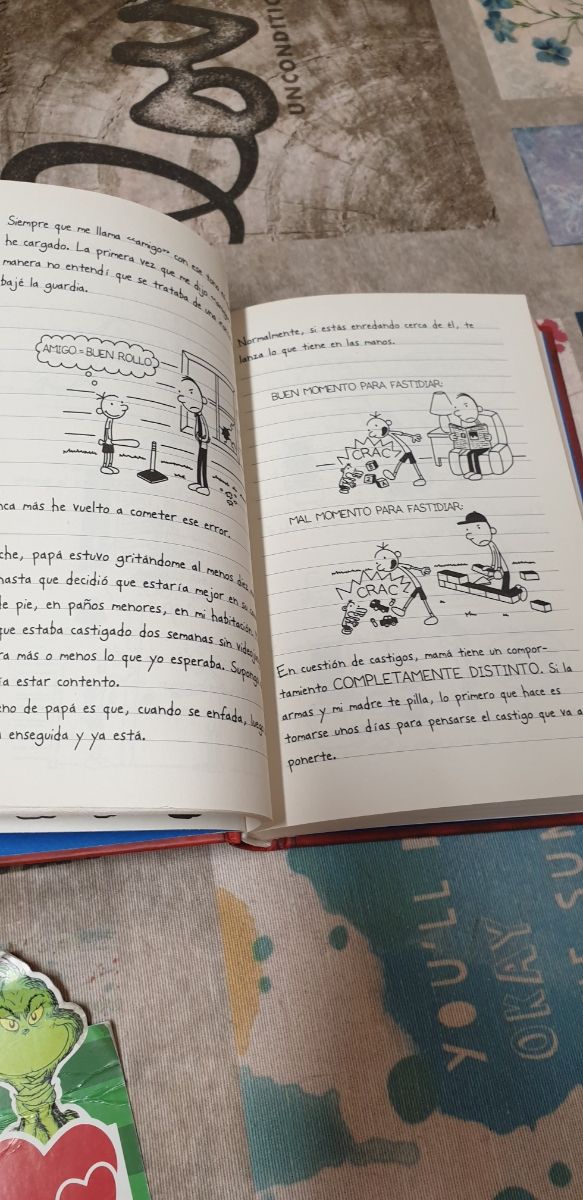 UNCONDITIO
Siempre que me llama «amigo» con ese tono
he cargado. La primera vez que me dijo
manera no entendí que se trataba de una
bajé la guardia.
AMIGO = BUEN ROLLO
nca más he vuelto a cometer ese error.
che, papá estuvo gritándome al menos diez
hasta que decidió que estaría mejor en su
de pie, en paños menores, en mi habitación.
que estaba castigado dos semanas sin
ra más o menos lo que yo esperaba.
ía estar contento.
eno de papá es que, cuando se enfada, luego
enseguida y ya está.
Normalmente, si estás enredando cerca de él, te
lanza lo que tiene en las manos.
BUEN MOMENTO PARA FASTIDIAR:
CRAC
MAL MOMENTO PARA FASTIDIAR:
CRAC
En cuestión de castigos, mamá tiene un compor-
tamiento COMPLETAMENTE DISTINTO. Si la
armas y mi madre te pilla, lo primero que hace es
tomarse unos días para pensarse el castigo que va a
ponerte.
YOU'LL
OKAY
SUN